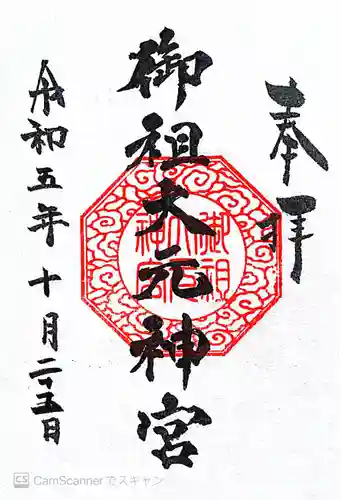 奉拝
御祖大元神宮
御祖
大元
神宮
令和五年十月二十五日
CS CamScannerでスキャン